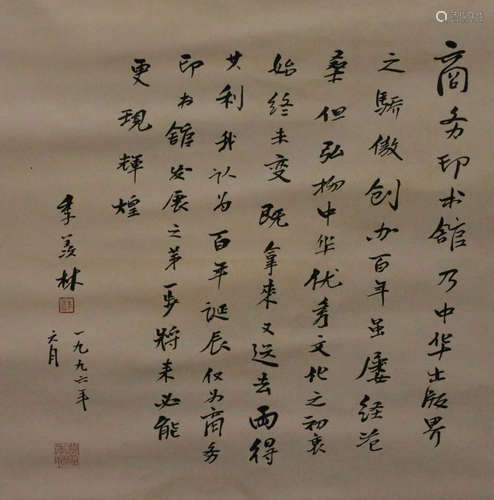 商务印书馆乃中华出版界
之骄傲创办百年虽屡经沧
桑但弘扬中华优秀文化之初衷
始终未变既拿来又送去两得
其利我认为百年诞辰仅为商务
印书馆发展之第一步将来必能
更现辉煌
季羡林
一九九六年
六月